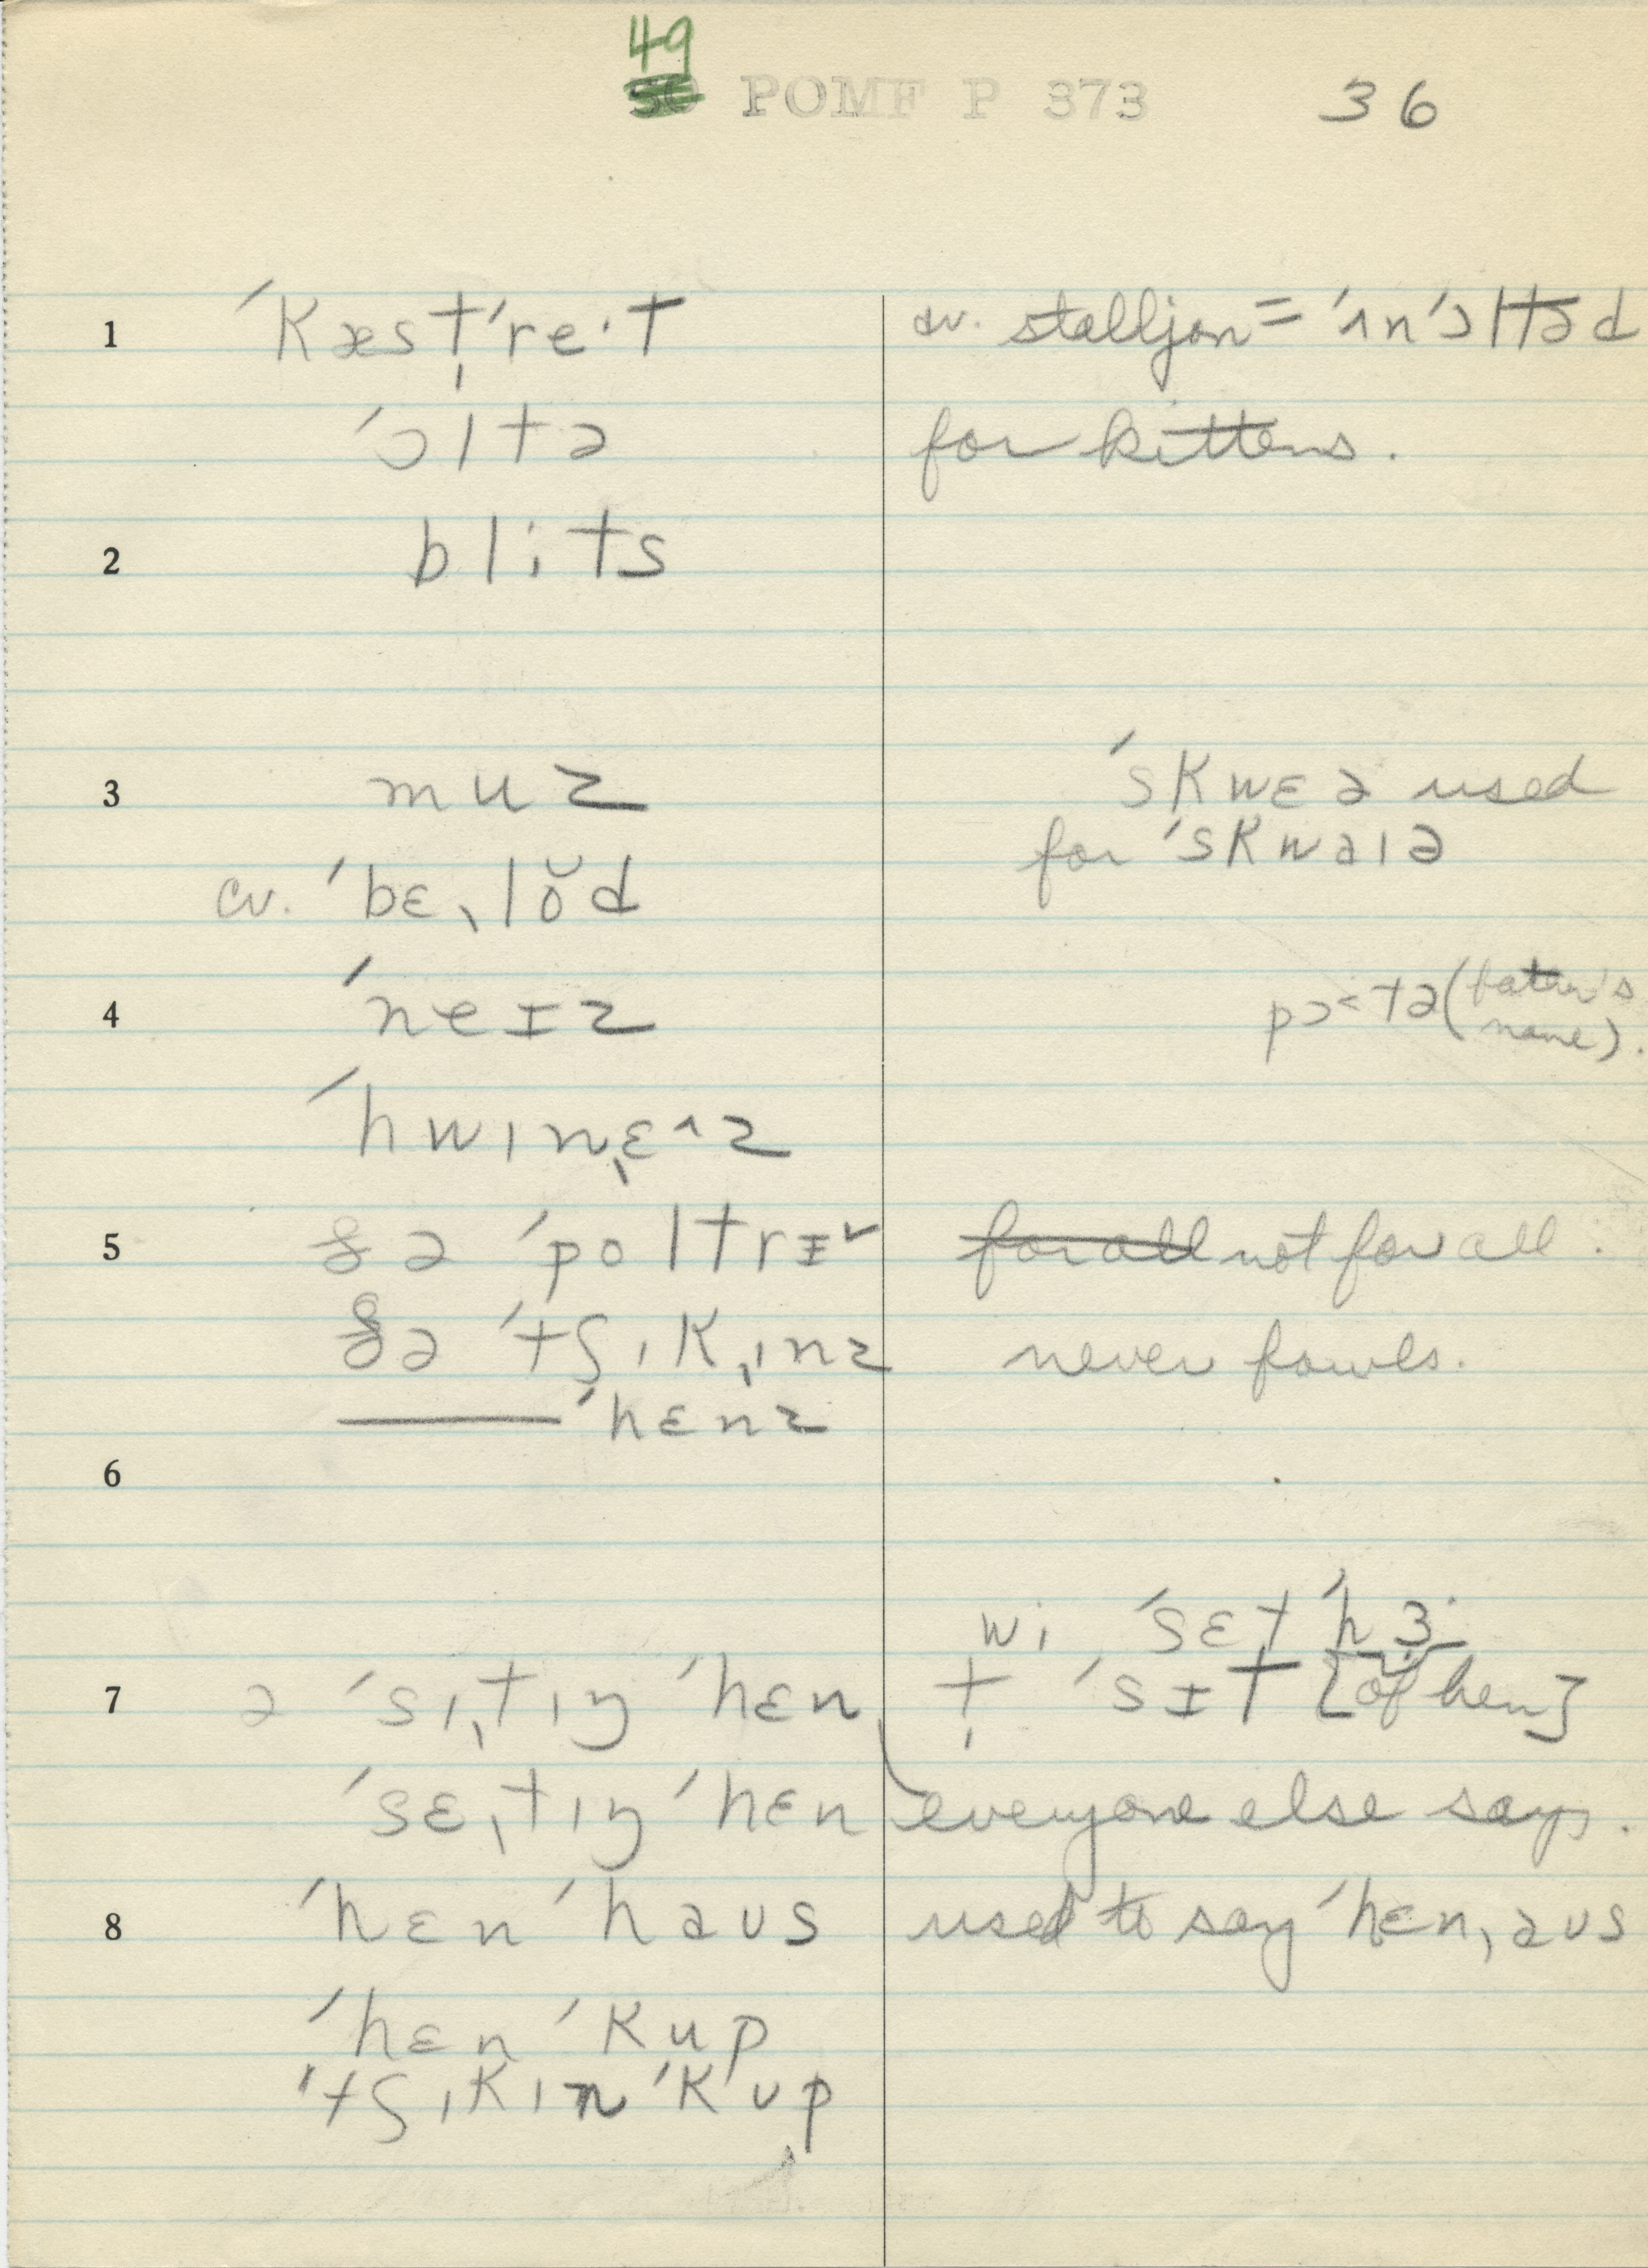 49
50 POMF P 373 36
1 ˈkæsˌtˈre·t cv. stalljən = ˈʌnˈɔltəd
ˈɔltə for kittens.
2 bli·ts
3 muz ˈskwɛə used
for ˈskwaɪə
cv. ˈbɛˌlŏd
4 ˈneɪz pɔ˂tə (father's name).
ˈhwɪnˌɛ^z
5 ðə ˈpoltrɪ˅ for all not for all.
ðə ˈtʃɪkˌɪnz never fowls.
——— ˈhɛnz
6
wi ˈsɛt ˈhɜ·
7 ə ˈsɪˌtɪŋ ˈhɛn t̩ ˈsɪt [of hen]
ˈsɛˌtɪŋ ˈhɛn everyone else says.
8 ˈhɛn ˈhaʊs used to say ˈhɛnˌaʊs
ˈhɛn ˈkup
ˈtʃɪkɪn ˈkʊp